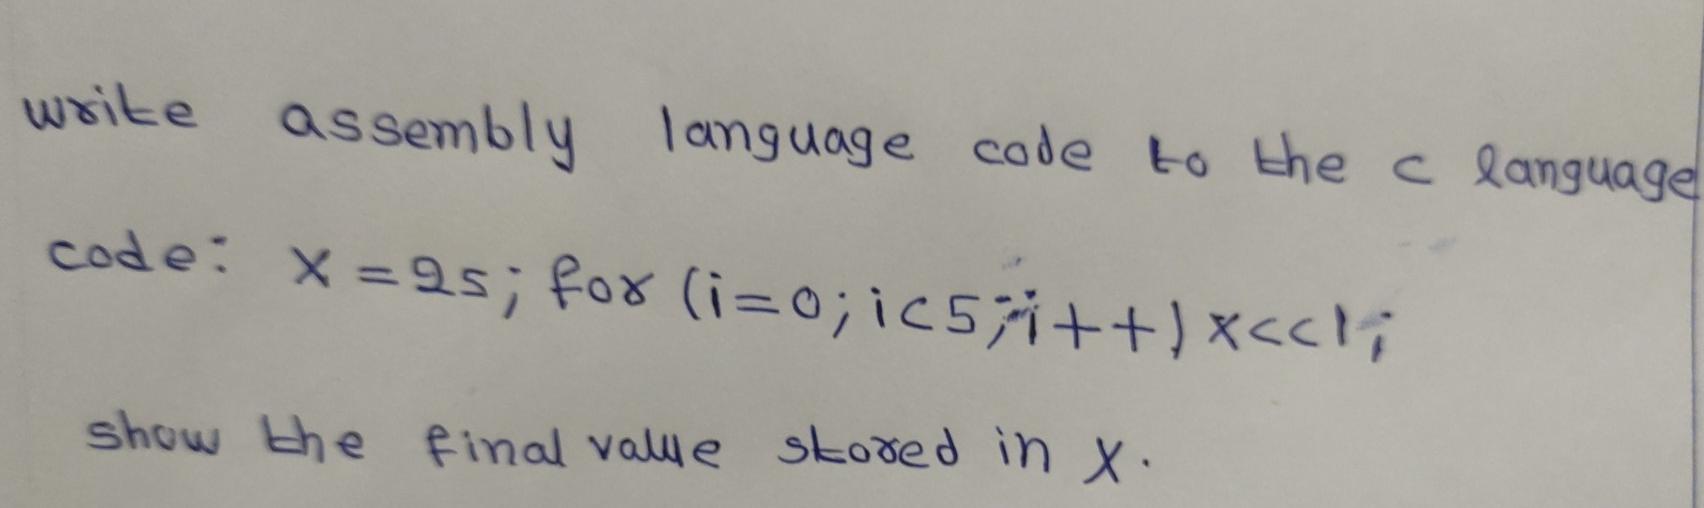 write assembly language code to the c language
code: x = 25; for (i=0; i<5; i++) x<<1;
show the final value stored in x.